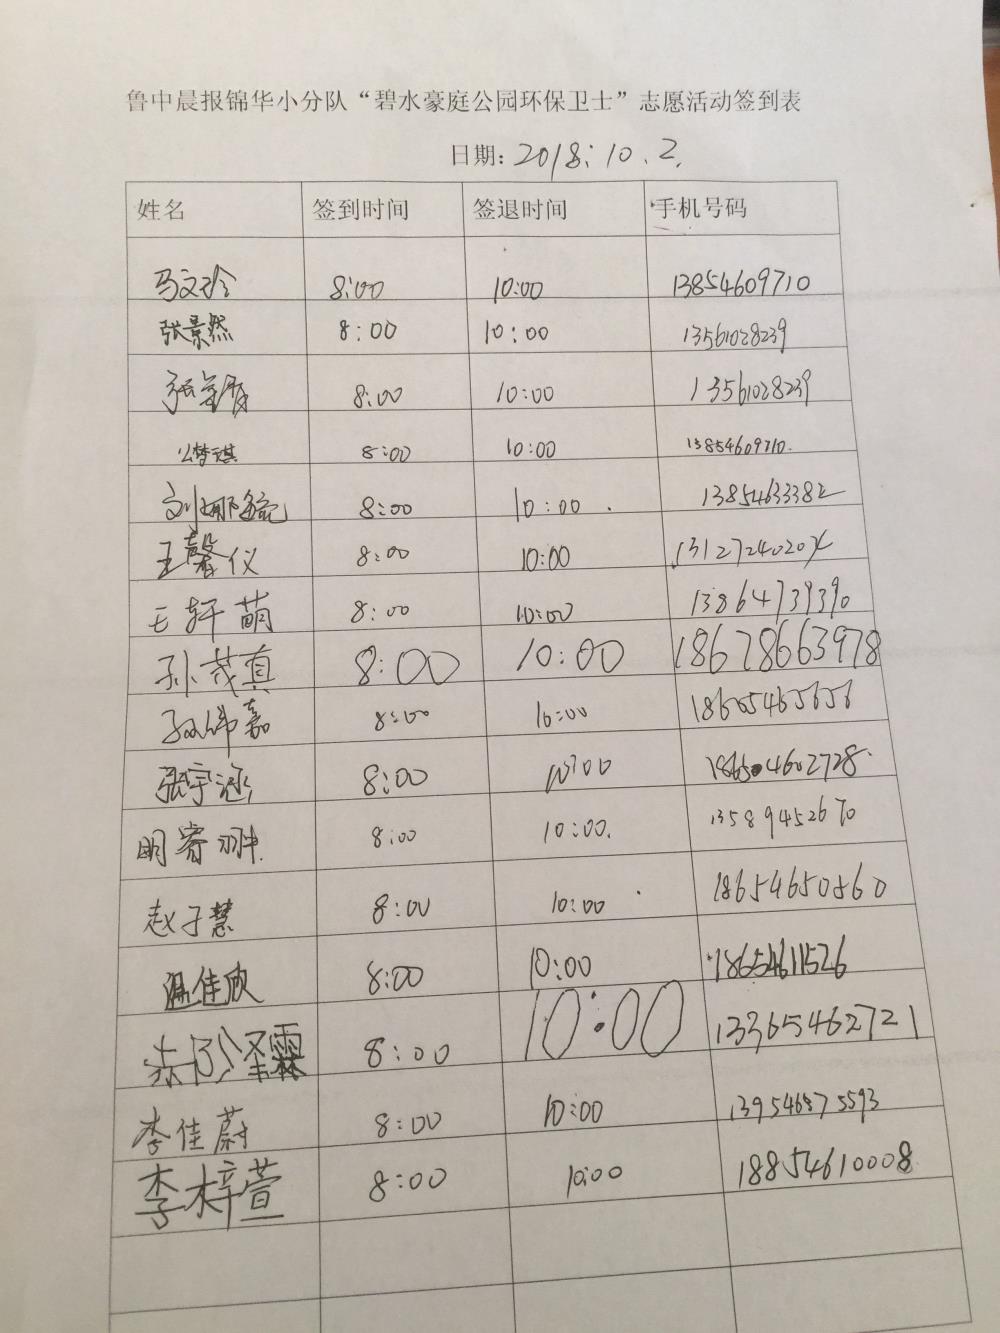 鲁中晨报锦华小分队“碧水豪庭公园环保卫士”志愿活动签到表
日期：2018.10.2.
姓名 签到时间 签退时间 手机号码
马文玲 8:00 10:00 13854609710
张景然 8:00 10:00 13561028239
张 8:00 10:00 13561028239
公梦琪 8:00 10:00 13854609710.
刘娜 8:00 10:00. 13854633382
王馨仪 8:00 10:00
王轩萌 8:00 10:00 13864739390
孙茂真 8:00 10:00 18678663978
孙伟嘉 8:00 10:00 18605465656
张宇涵 8:00 10:00 186504602728.
明睿翀. 8:00 10:00. 13589452670
赵子慧 8:00 10:00 18654650560
温佳欣 8:00 10:00 18654611526
圣霖 8:00 10:00 13365462721
李佳蔚 8:00 10:00 139546875593
李梓萱 8:00 10:00 18854610008